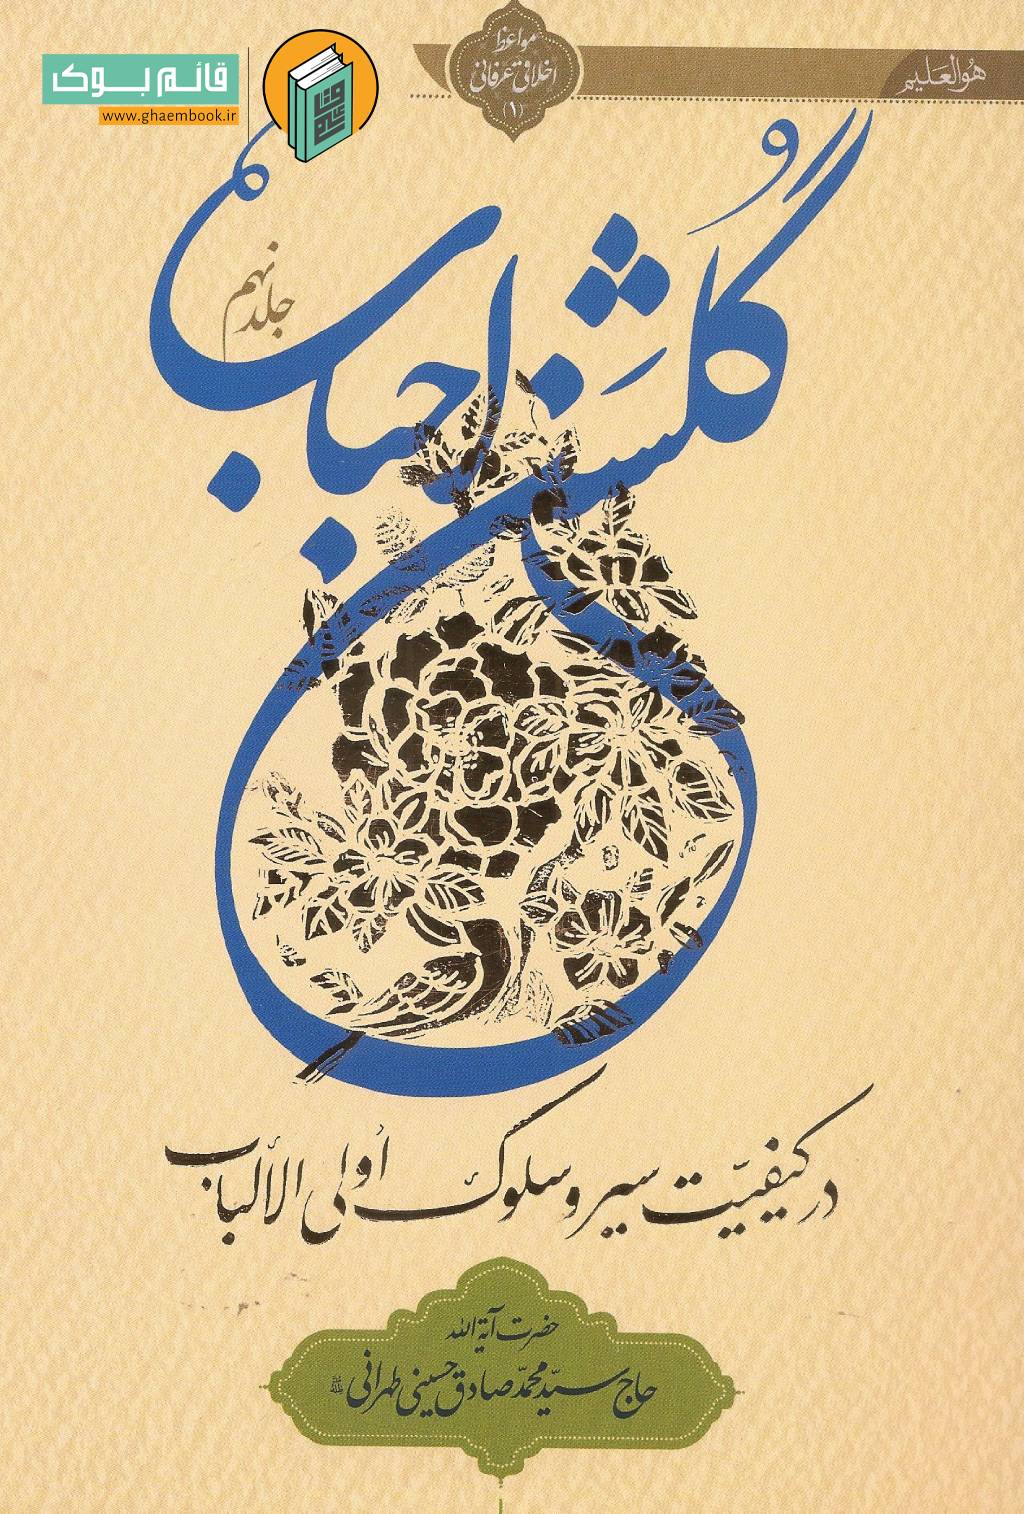 هُوَالعَلیم
مواعظ
اخلاقی عرفانی
(۱)
قائم بوک
www.ghaembook.ir
گُلشَن احباب
جلد نهم
در کیفیّت سیر و سلوک اُولی الألباب
حضرت آیة الله
حاج سیّد محمّد صادق حسینی طهرانی